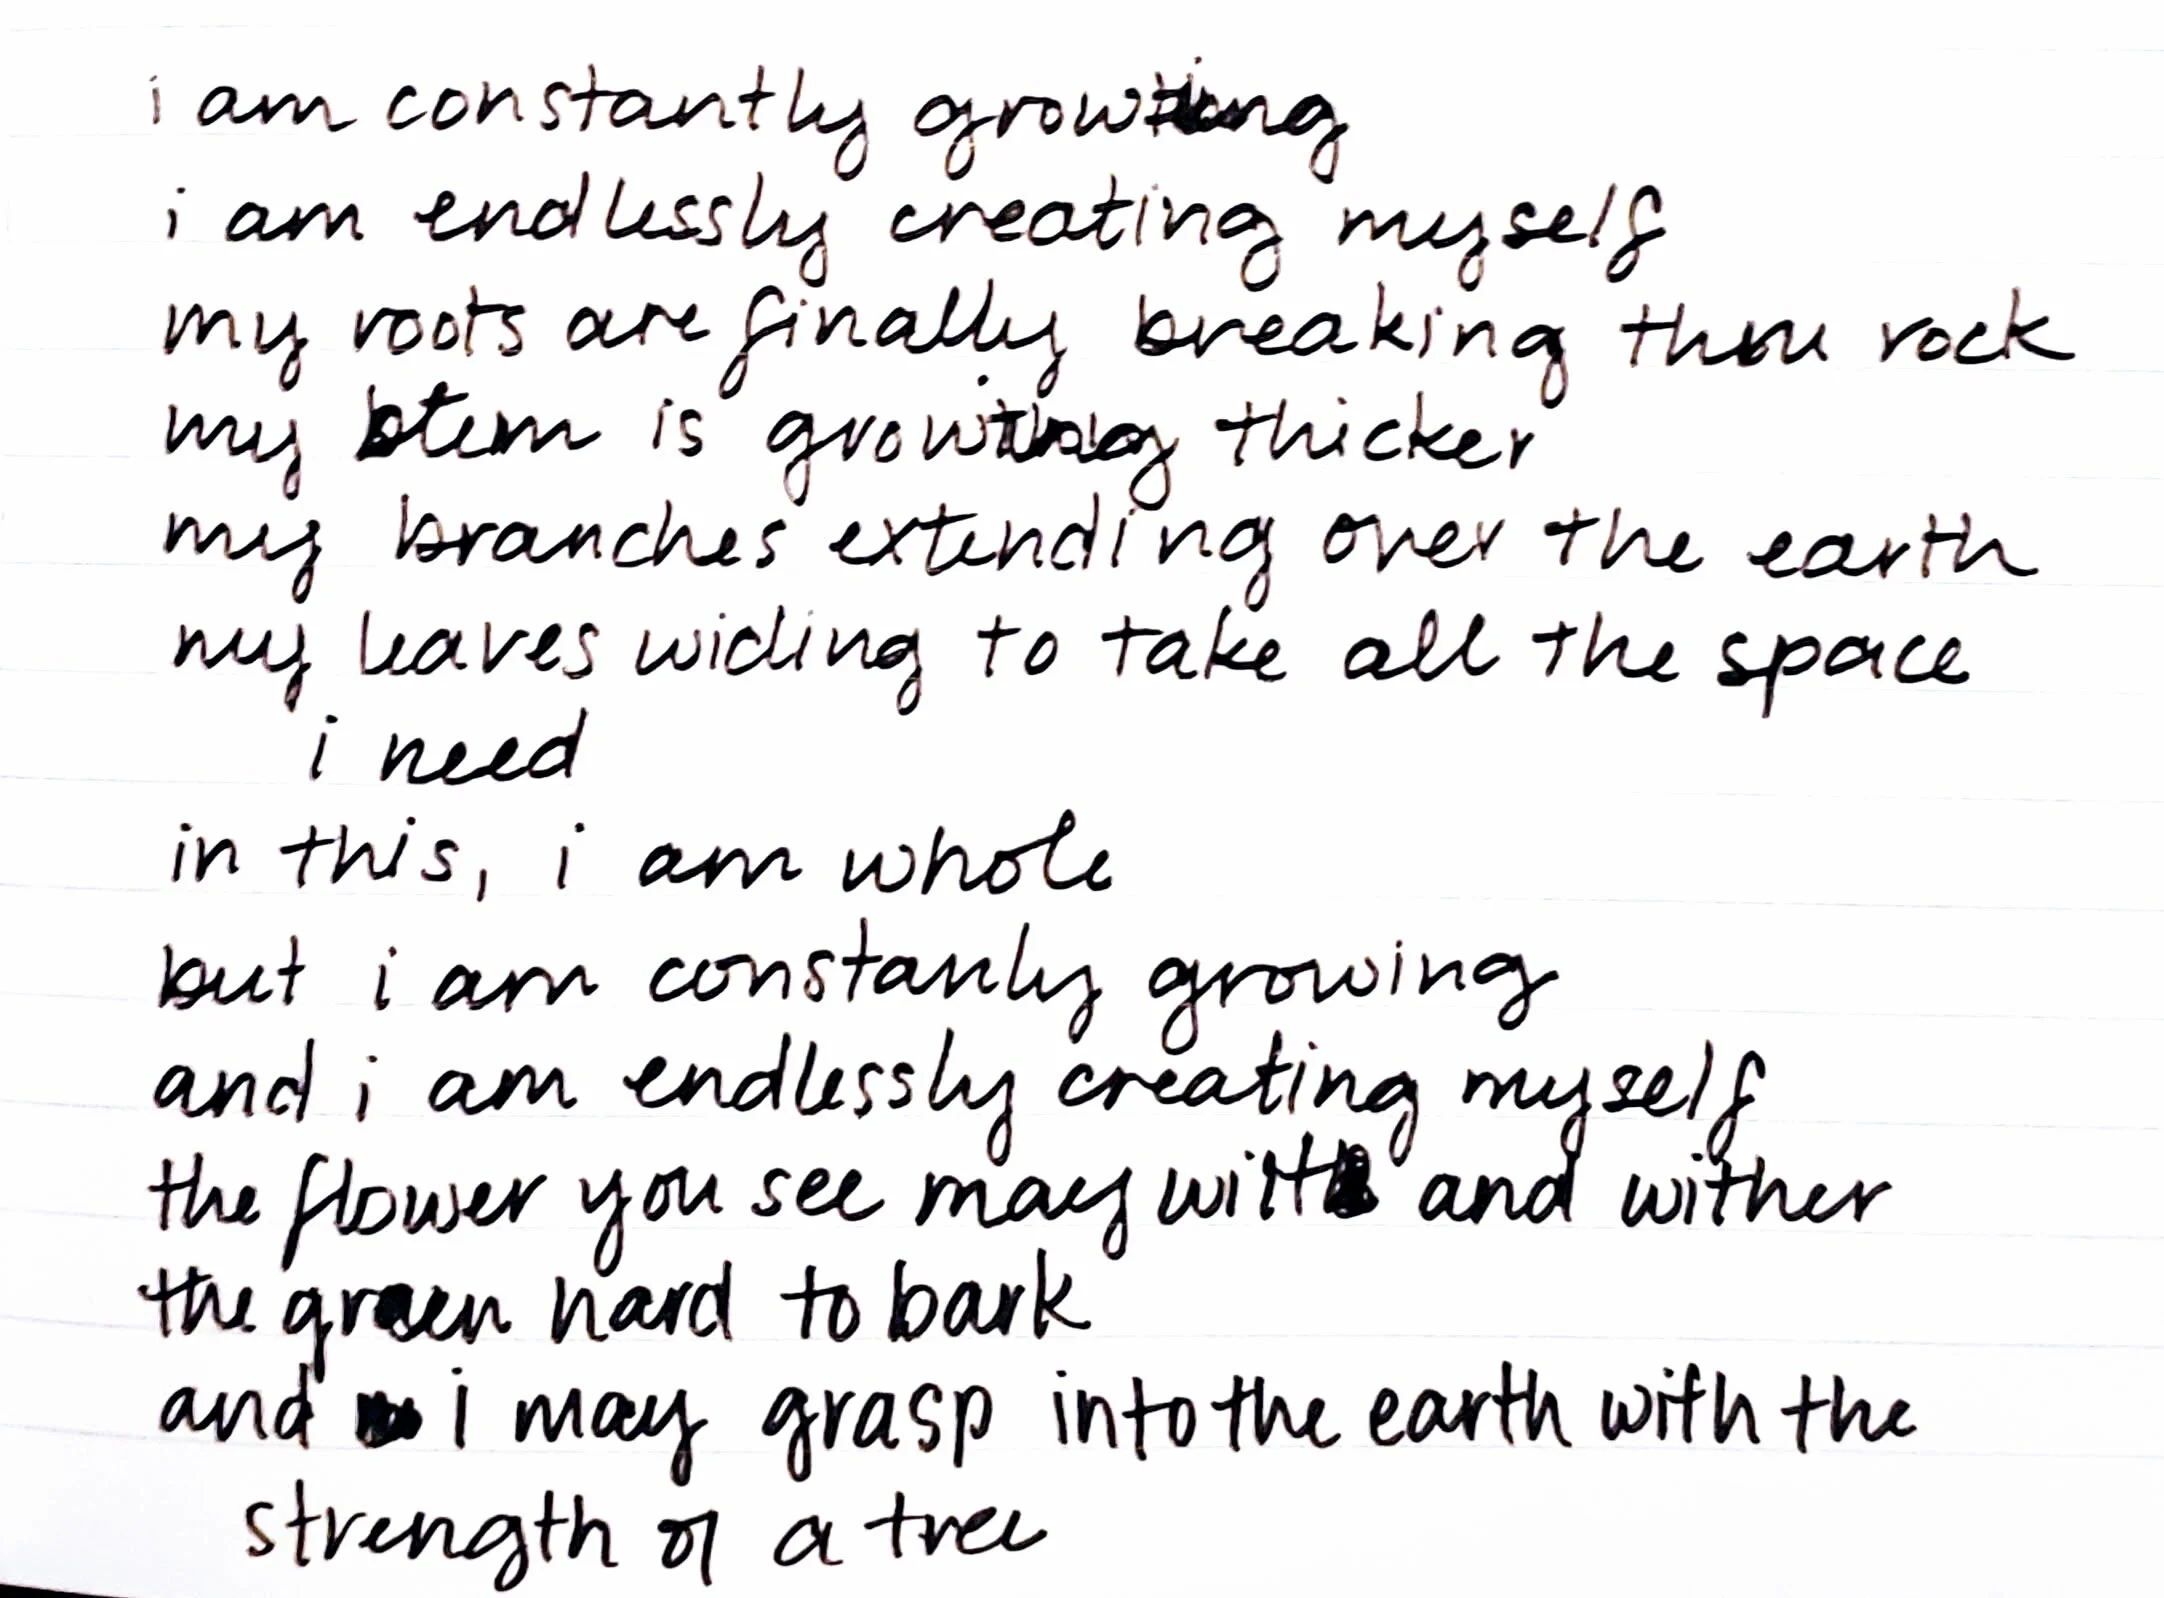 i am constantly growing
i am endlessly creating myself
my roots are finally breaking thru rock
my stem is growing thicker
my branches extending over the earth
my leaves widing to take all the space
i need
in this, i am whole
but i am constanly growing
and i am endlessly creating myself
the flower you see may wilt and wither
the green hard to bark
and i may grasp into the earth with the
strength of a tree